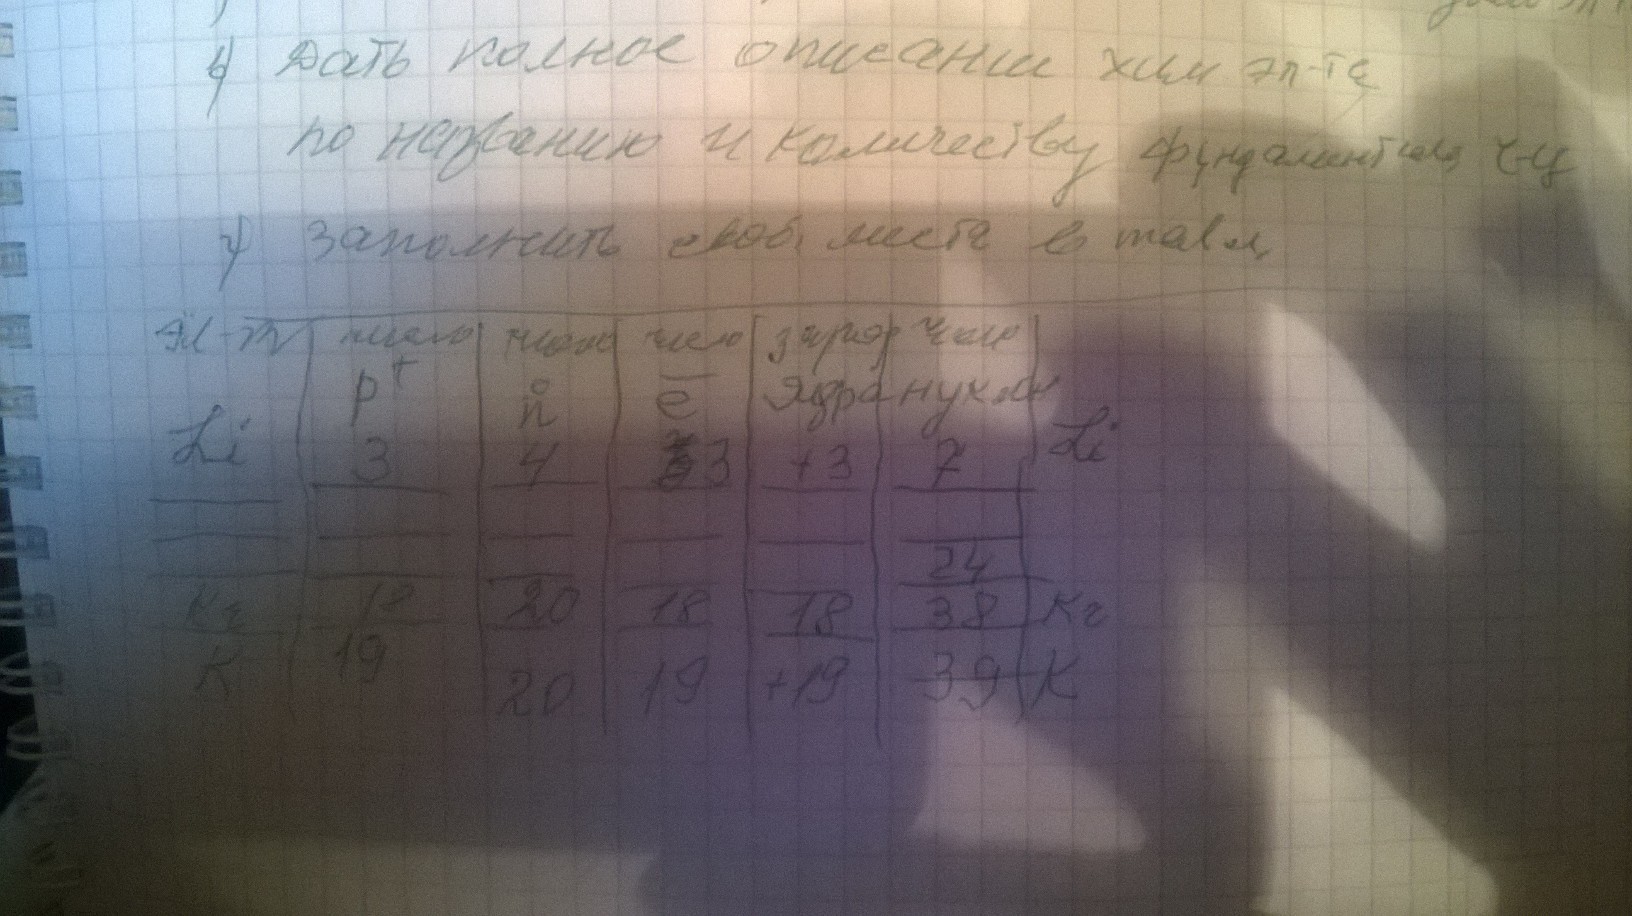 6) Дать полное описание хим эл-та
по названию и количеству фундаментальн ч-ц
7) Заполнить своб. места в табл
Эл-т число число число заряд число
p+ n e ядра нуклон
Li 3 4 3 +3 7 Li
24
Kr 18 20 18 18 38 Kr
K 19 20 19 +19 39 K